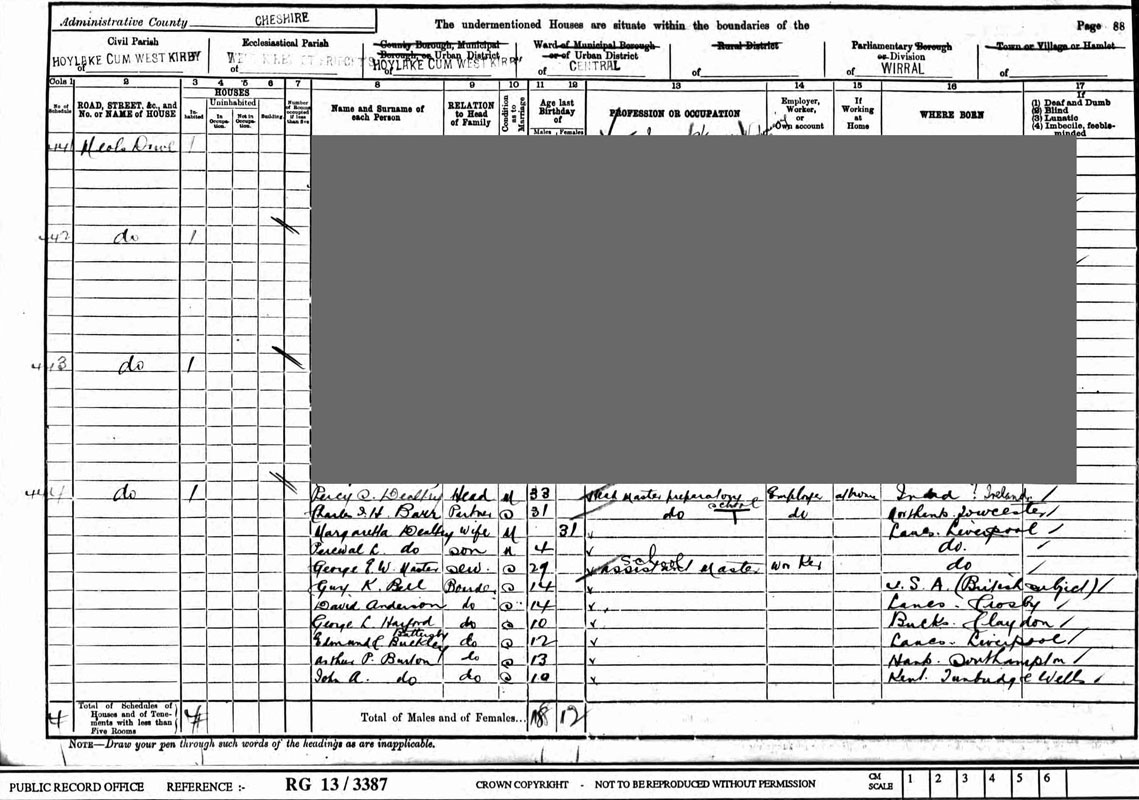 Administrative County CHESHIRE
The undermentioned Houses are situate within the boundaries of the
Page 88
Civil Parish
of HOYLAKE CUM WEST KIRBY
Ecclesiastical Parish
of
County Borough, Municipal Borough, or Urban District
of HOYLAKE CUM WEST KIRBY
Ward of Municipal Borough or of Urban District
of CENTRAL
Rural District
of
Parliamentary Borough or Division
of WIRRAL
Town or Village or Hamlet
of
Cols 1 2 3 4 5 6 7 8 9 10 11 12 13 14 15 16 17
No. of Schedule
ROAD, STREET, &c., and No. or NAME of HOUSE
HOUSES
Inhabited
Uninhabited
In Occupation.
Not in Occupation.
Building
Number of Rooms occupied if less than five
Name and Surname of each Person
RELATION to Head of Family
Condition as to Marriage
Age last Birthday of
Males Females
PROFESSION OR OCCUPATION
Employer, Worker, or Own account
If Working at Home
WHERE BORN
If
(1) Deaf and Dumb
(2) Blind
(3) Lunatic
(4) Imbecile, feeble-minded
441 Meols Drive 1
442 do 1
443 do 1
444 do 1 Percy Head M 33 Head Master preparatory school Employer at home Ireland
Charles H. Barr Partner S 31 do do Northants. Towcester
Margaretta Wife M 31 Lancs. Liverpool
Percival L. do son 4 do.
George E. W. Master Serv. S 29 Assistant School Master Worker do
Guy K. Bell Boarder S 14 U.S.A. (British subject)
David Anderson do S 14 Lancs. Crosby
George L Harford do S 10 Bucks. Claydon
Edmund Battersby Buckley do S 12 Lancs. Liverpool
Arthur P. Burton do S 13 Hants. Southampton
John A. do do S 10 Kent. Tunbridge Wells
4 Total of Schedules of Houses and of Tenements with less than Five Rooms 4
Total of Males and of Females... 18 12
NOTE—Draw your pen through such words of the headings as are inapplicable.
PUBLIC RECORD OFFICE REFERENCE :- RG 13 / 3387 CROWN COPYRIGHT - NOT TO BE REPRODUCED WITHOUT PERMISSION CM SCALE 1 2 3 4 5 6